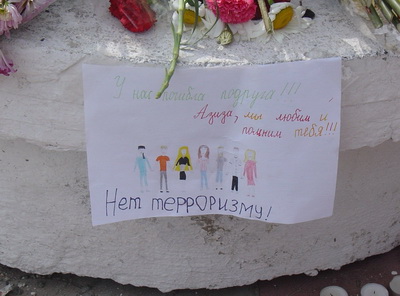 У нас погибла подруга!!!
Азиза, мы любим и
помним тебя!!!
Нет терроризму!